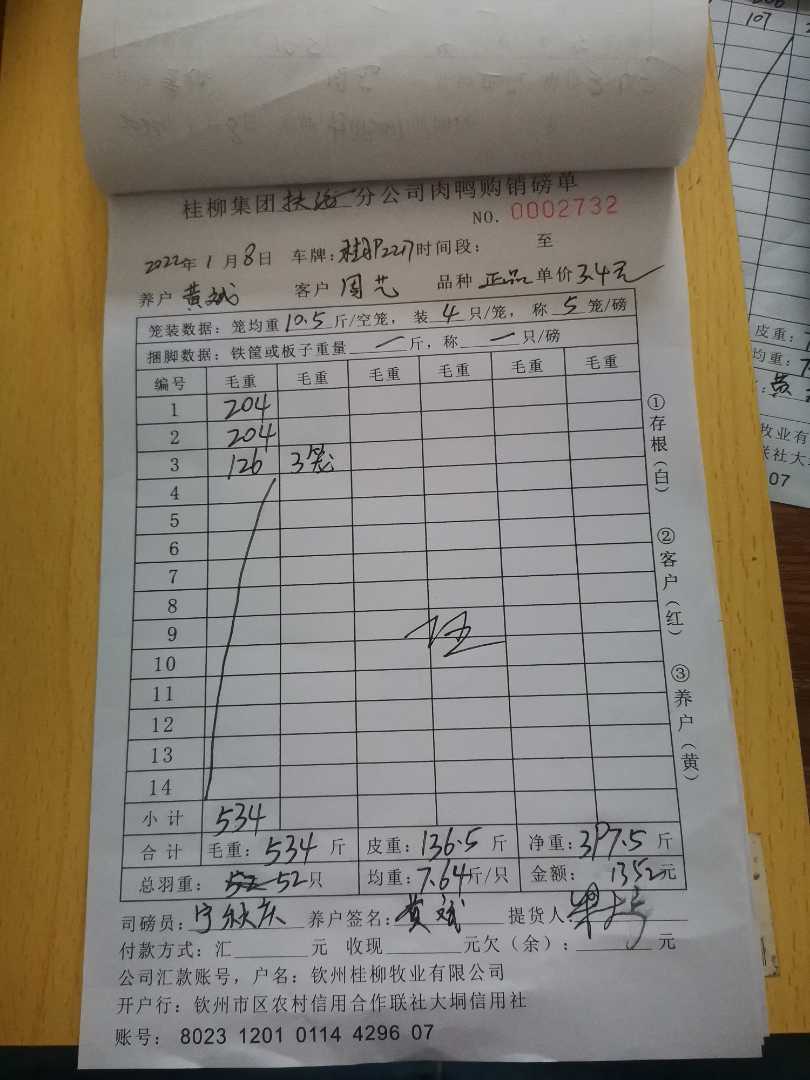 107
桂柳集团扶绥分公司肉鸭购销磅单
NO. 0002732
2022年1月8日 车牌: 时间段: 至
养户 黄斌 客户 周艺 品种 正品 单价 3.4元
笼装数据: 笼均重10.5斤/空笼, 装4只/笼, 称5笼/磅
捆脚数据: 铁筐或板子重量一斤, 称一只/磅
编号 毛重 毛重 毛重 毛重 毛重 毛重
1 204
2 204
3 126 3笼
4
5
6
7
8
9
10
11
12
13
14
小计 534
合计 毛重: 534斤 皮重: 136.5斤 净重: 397.5斤
总羽重: 52只 均重: 7.64斤/只 金额: 1352元
司磅员: 宁秋庆 养户签名: 黄斌 提货人:
付款方式: 汇 元 收现 元欠(余): 元
公司汇款账号, 户名: 钦州桂柳牧业有限公司
开户行: 钦州市区农村信用合作联社大垌信用社
账号: 8023 1201 0114 4296 07
①存根(白) ②客户(红) ③养户(黄)
皮重:
均重:
牧业有
联社大
07